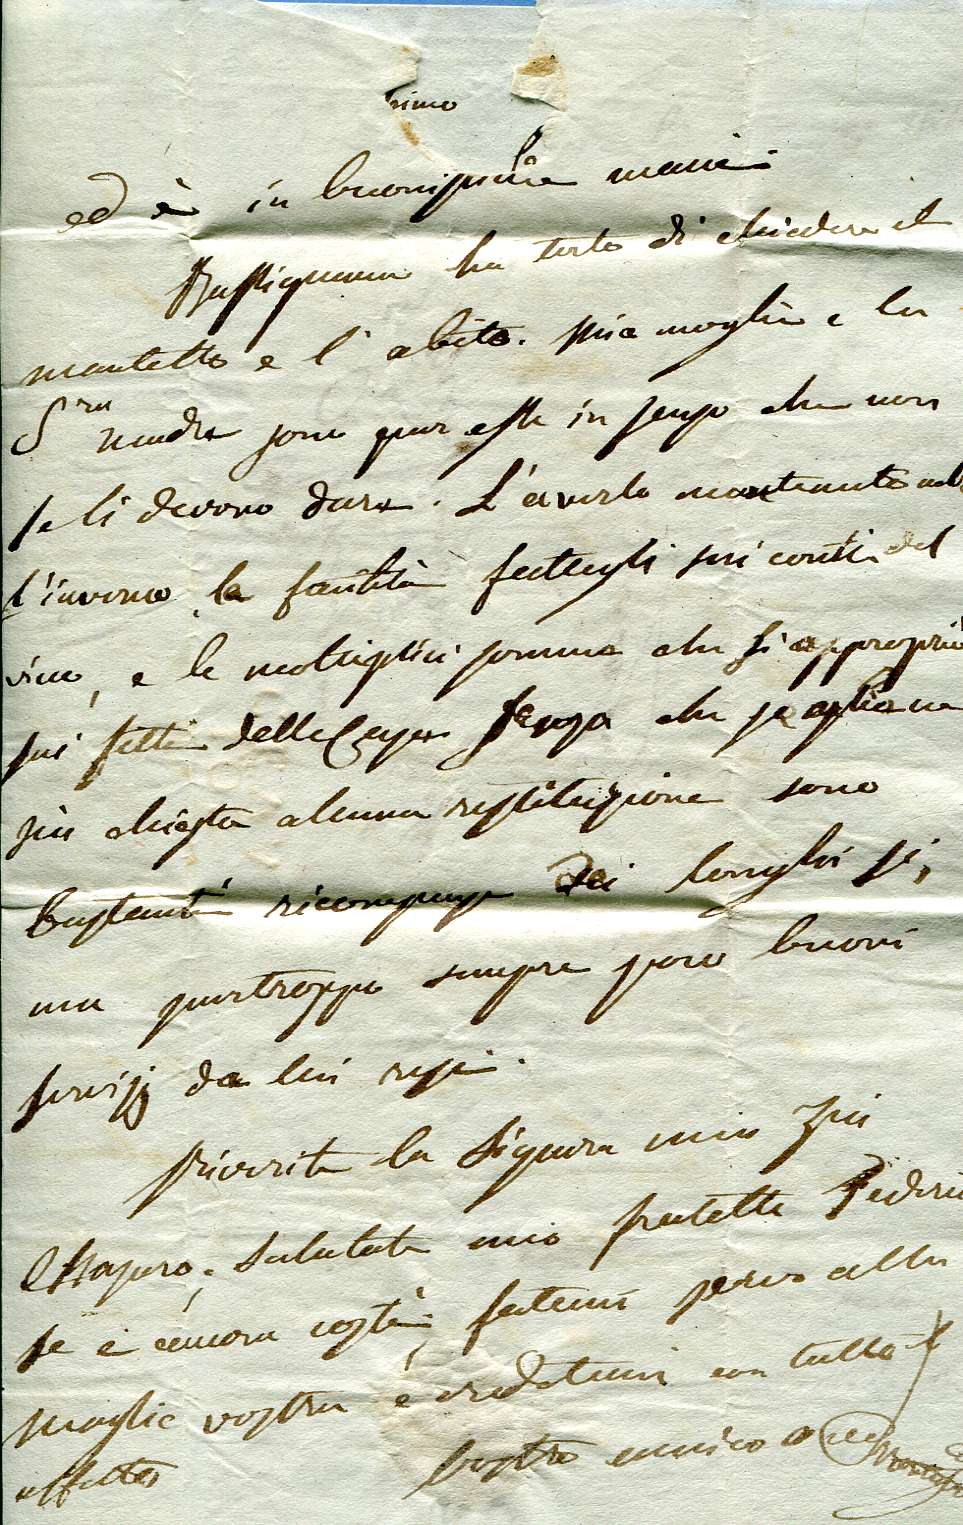 rimo
ed è in buonissime mani.
ha torto di chiedere il
mantello e l'abito. Mia moglie e la
S.ra madre sono pur esse in senso che non
se li devono dare. L'averlo mantenuto nel
l'inverno, la fattigli sui conti del
vino, e le moltiplici somme che si appropriò
sui fitti delle Case senza che se gliene
sia chiesta alcuna restituzione sono
bastanti ricompense dei lunghi sì,
ma purtroppo sempre poco buoni
servizj da lui resi.
Riverite la Signora mia Zia
salutate mio fratello Federico
se è ancora costì, fatemi servo alla
moglie vostra e credetemi con tutto l'
affetto
vostro amico